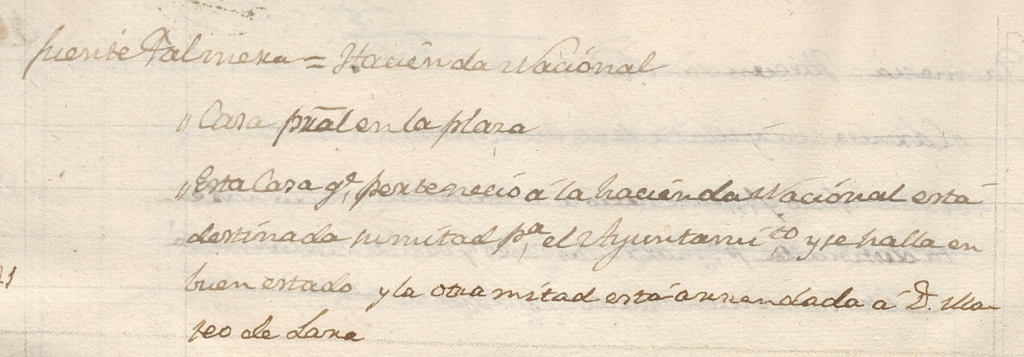 fuente Palmera = Haciénda Naciónal
" Casa pral en la plaza
" Esta Casa qe. perteneció á la haciénda Naciónal está
destinada su mitad pa. el Ayuntamito y se halla en
buen estado y la otra mitad está arrendada á D. Ma-
teo de Lara